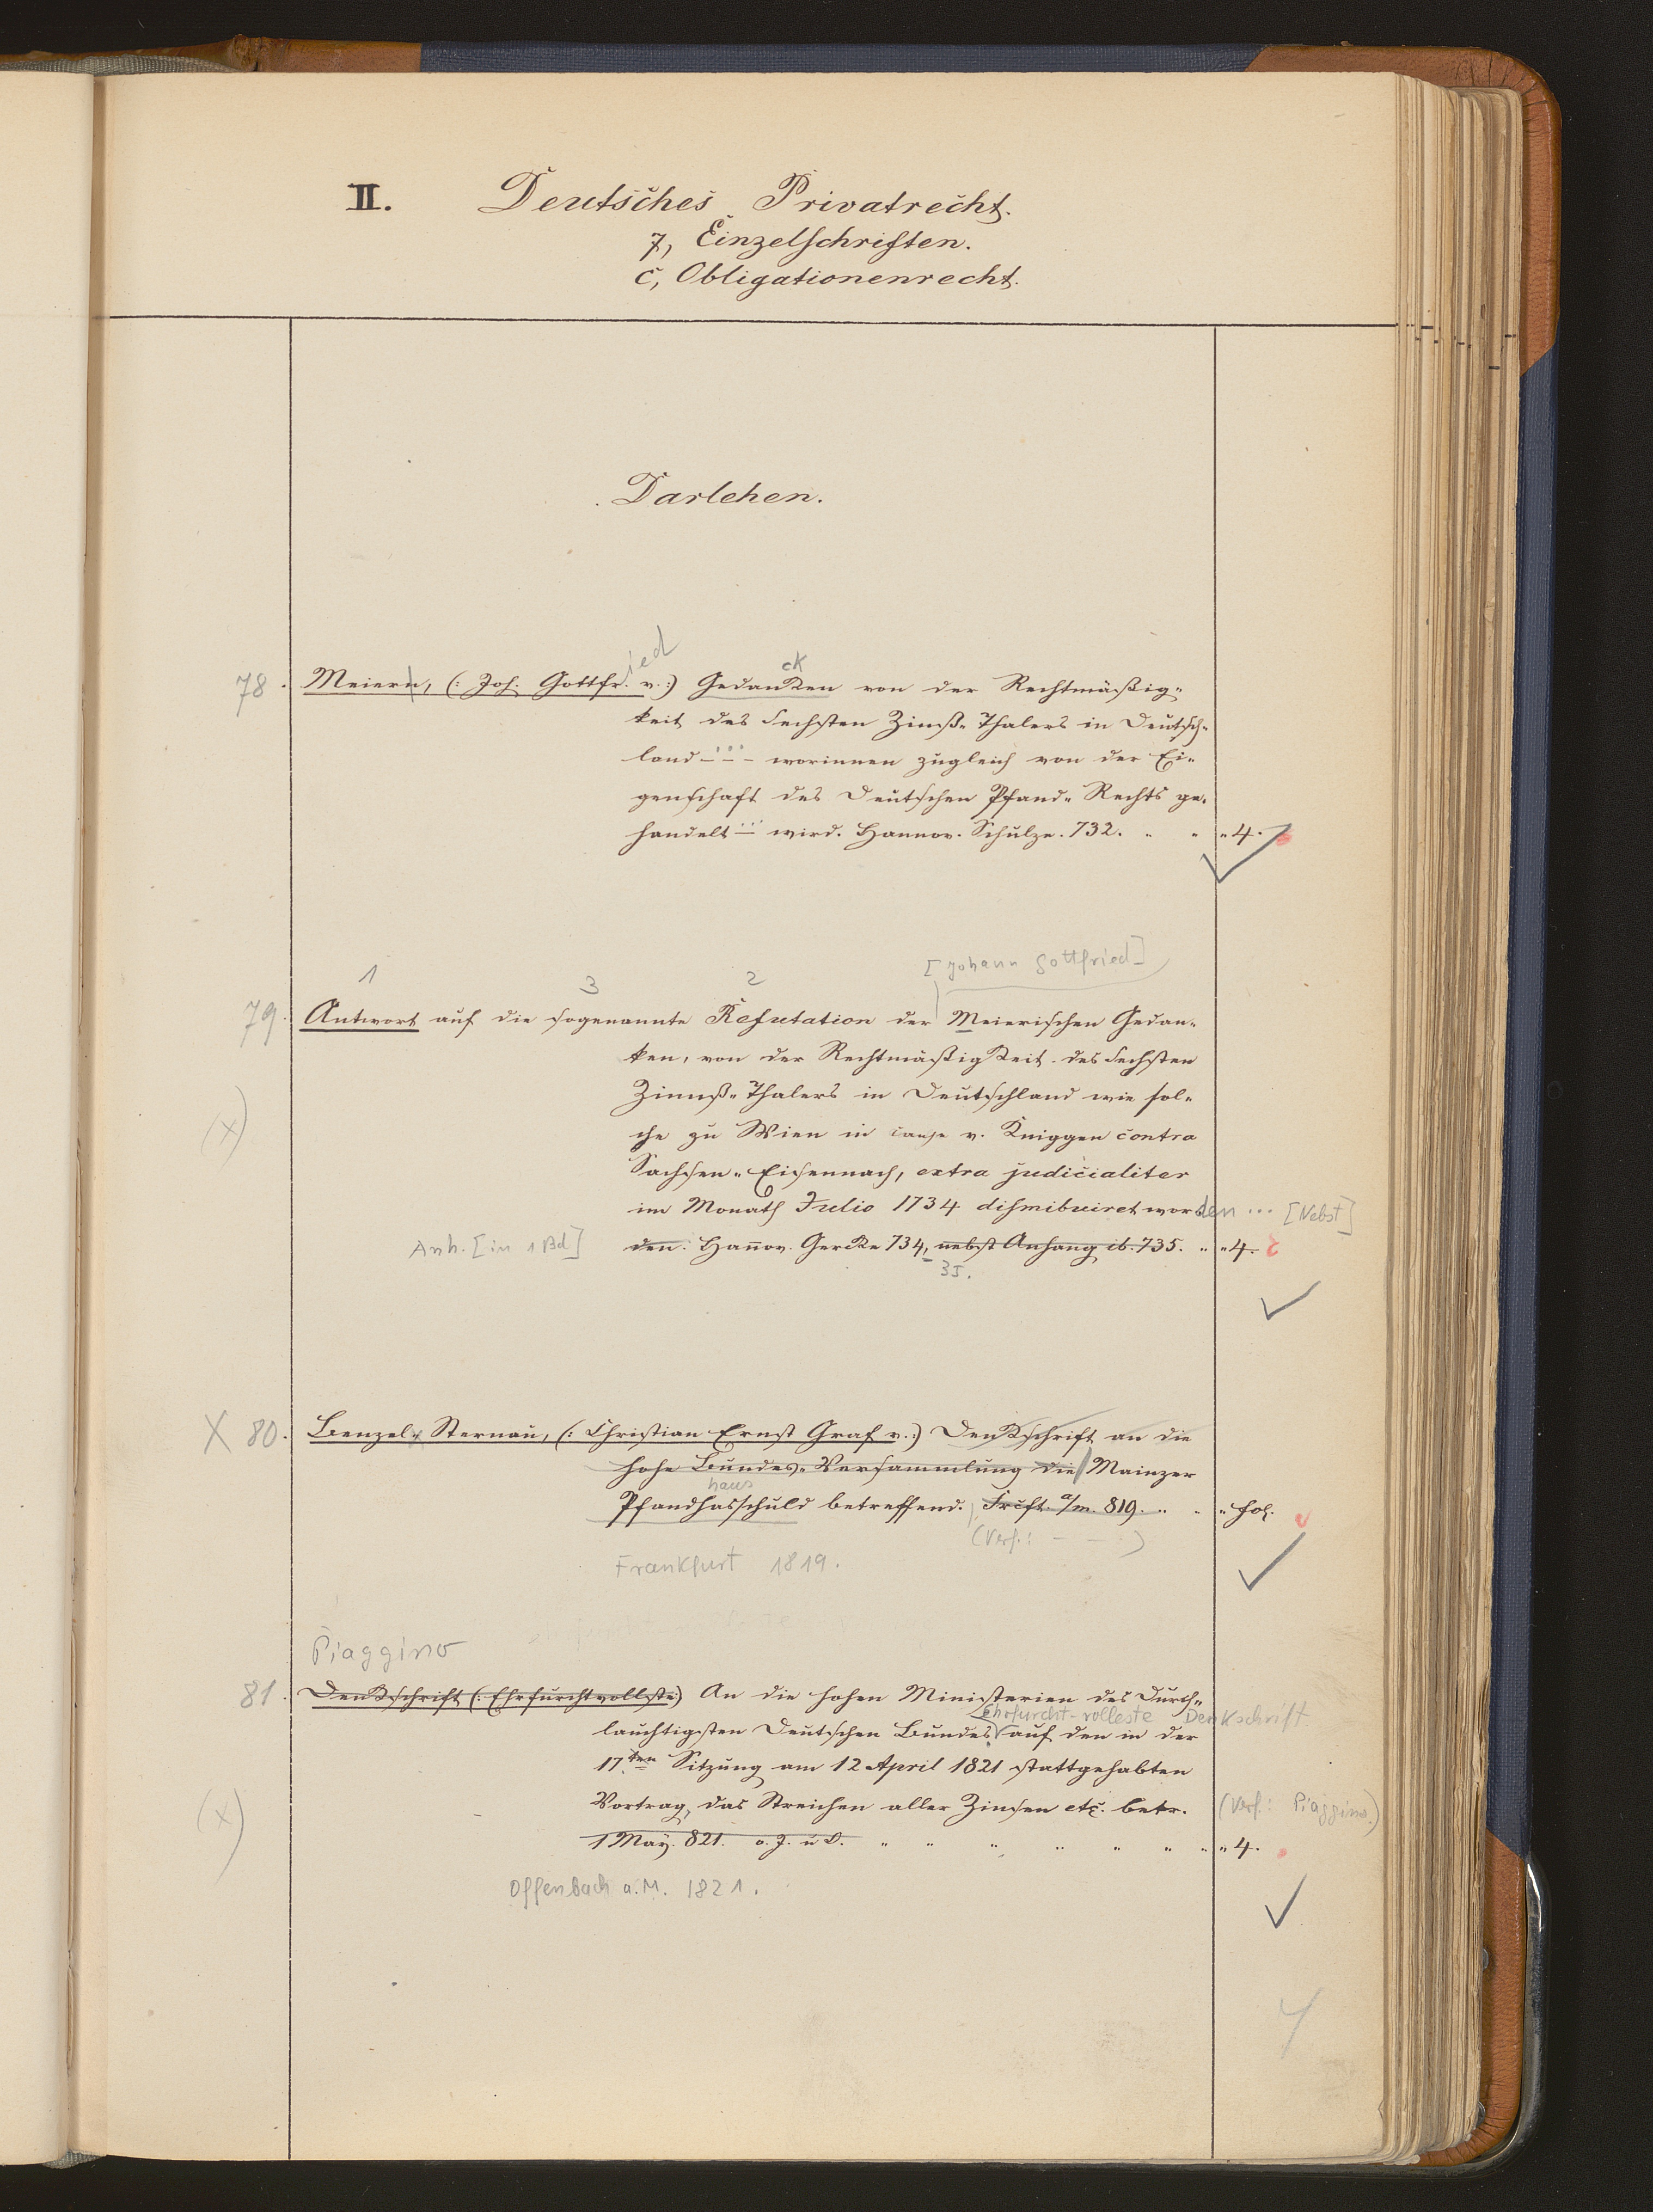 II. Deutsches Privatrecht.
7, Einzelschriften.
c, Obligationenrecht.
Darlehen.
ied
ck
78. Meiern, (: Joh. Gottfr. v.:) Gedanken von der Rechtmäßig-
keit des sechsten Zinß-Thalers in Deutsch-
land - ... - worinnen zugleich von der Ei-
genschaft des Deutschen Pfand-Rechts ge-
handelt ... wird. Hannov. Schulze. 732. " " " 4.
[Johann Gottfried]
1 3 2
79. Antwort auf die sogenannte Refutation der Meierischen Gedan-
ken, von der Rechtmäßigkeit des sechsten
Zinnß-Thalers in Deutschland wie sol-
(x) che zu Wien in causa v. Kniggen contra
Sachsen-Eisennach, extra judicialiter
im Monath Julio 1734 dismibuiret wor den ... [Nebst]
Anh. [in 1 Bd] den. Hanov. Gercke 734, nebst Anhang ib. 735. " " 4.
35.
X 80. Benzel-Sternau, (: Christian Ernst Graf v.:) Denkschrift an die
hohe Bundes-Versammlung die Mainzer
haus
Pfandhasschuld betreffend. Frcft. a/m. 819. " " " fol.
(Verf.: - - )
Frankfurt 1819.
Piaggino
81. Denkschrift (: Ehrfurchtvollste) An die hohen Ministerien des Durch-
Ehrfurcht-volleste Denkschrift
lauchtigsten Deutschen Bundes auf den in der
17.ten Sitzung am 12 April 1821 stattgehabten
(x) Vortrag, das Streichen aller Zinsen etc. betr. (Verf.: Piaggino.)
1 May. 821. o. J. u O. " " " " " " " " 4.
Offenbach a. M. 1821.
4